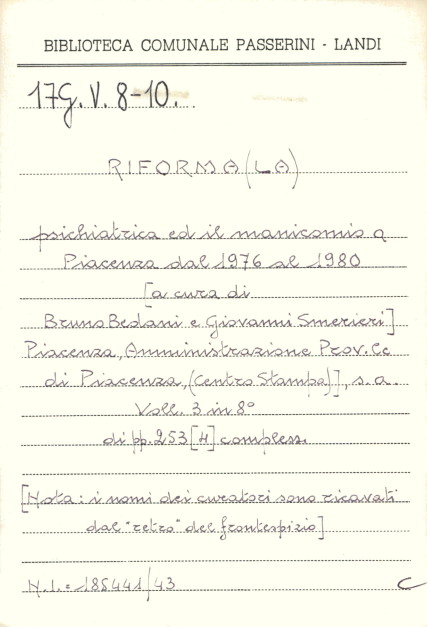 BIBLIOTECA COMUNALE PASSERINI - LANDI
17G. V. 8-10.
RIFORMA (LA)
psichiatrica ed il manicomio a
Piacenza dal 1976 al 1980
[a cura di
Bruno Bedani e Giovanni Smerieri]
Piacenza, Amministrazione Prov.le
di Piacenza, (Centro Stampa)], s.a.
Voll. 3 in 8°
di pp. 253 [4] compless.
[Nota: i nomi dei curatori sono ricavati
dal "retro" del frontespizio]
N.I. = 185441/43
C